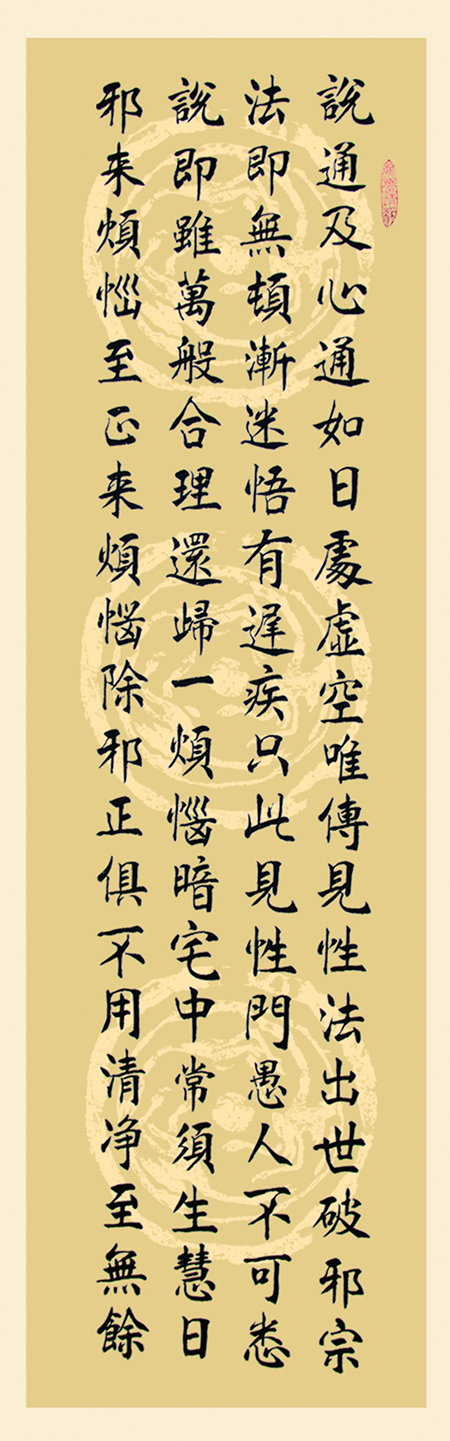 說通及心通如日處虛空唯傳見性法出世破邪宗
法即無頓漸迷悟有遲疾只此見性門愚人不可悉
說即雖萬般合理還歸一煩惱暗宅中常須生慧日
邪来煩惱至正来煩惱除邪正俱不用清净至無餘